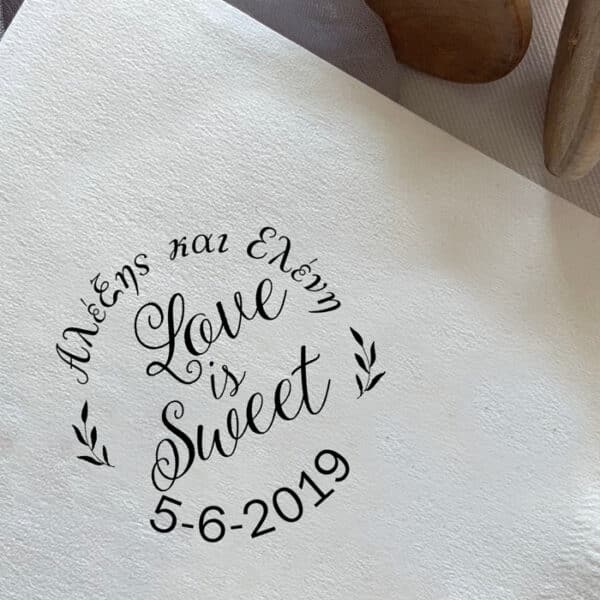 Αλέξης και Ελένη
Love
is
Sweet
5-6-2019